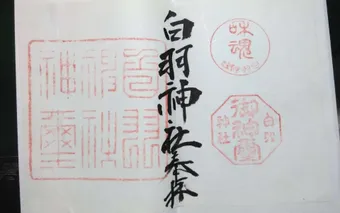 白羽神社奉拝
味魂
御神霊
白羽
神社
白羽
神社
神璽